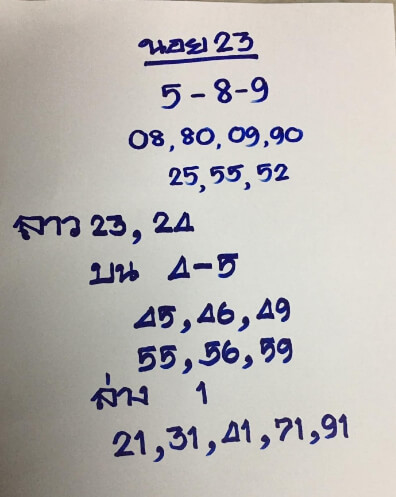 นอย 23
5-8-9
08,80,09,90
25,55,52
ลาว 23, 24
บน 4-5
45,46,49
55,56,59
ล่าง 1
21,31,41,71,91